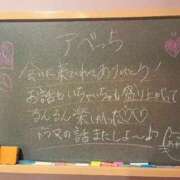 アベっち
会いに来てくれてありがとう!
お話もいちゃいちゃも盛り上がって
るんるん楽しかった♡
の話またしよ〜♪